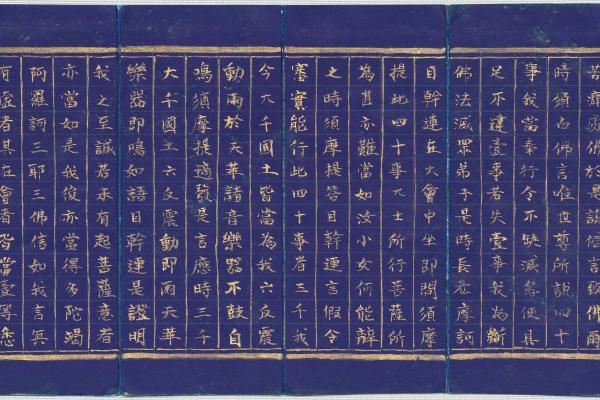 苦痛處佛於是說偈言致佛爾
時須白佛言唯世尊所說四十
事我當奉行令不缺減悉使具
足不違壹事若失壹事我為斷
佛法減眾弟子是時長老摩訶
目幹連在大會中坐即問須摩
提此四十事大士所行菩薩所
為甚亦難當如汝小女何能辦
之時須摩提答目幹連言假令
審實能行此四十事者三千我
今大千國土皆當為我六反震
動雨於天華諸音樂器不鼓自
鳴須摩提適發是言應時三千
大千國土六反震動即雨天華
樂器即鳴如語目幹連是證明
我之至誠若未有起菩薩意者
亦當如是我後亦當得多陀竭
阿羅訶三耶三佛信如我言無
有虛者其在會者皆當壹等悉